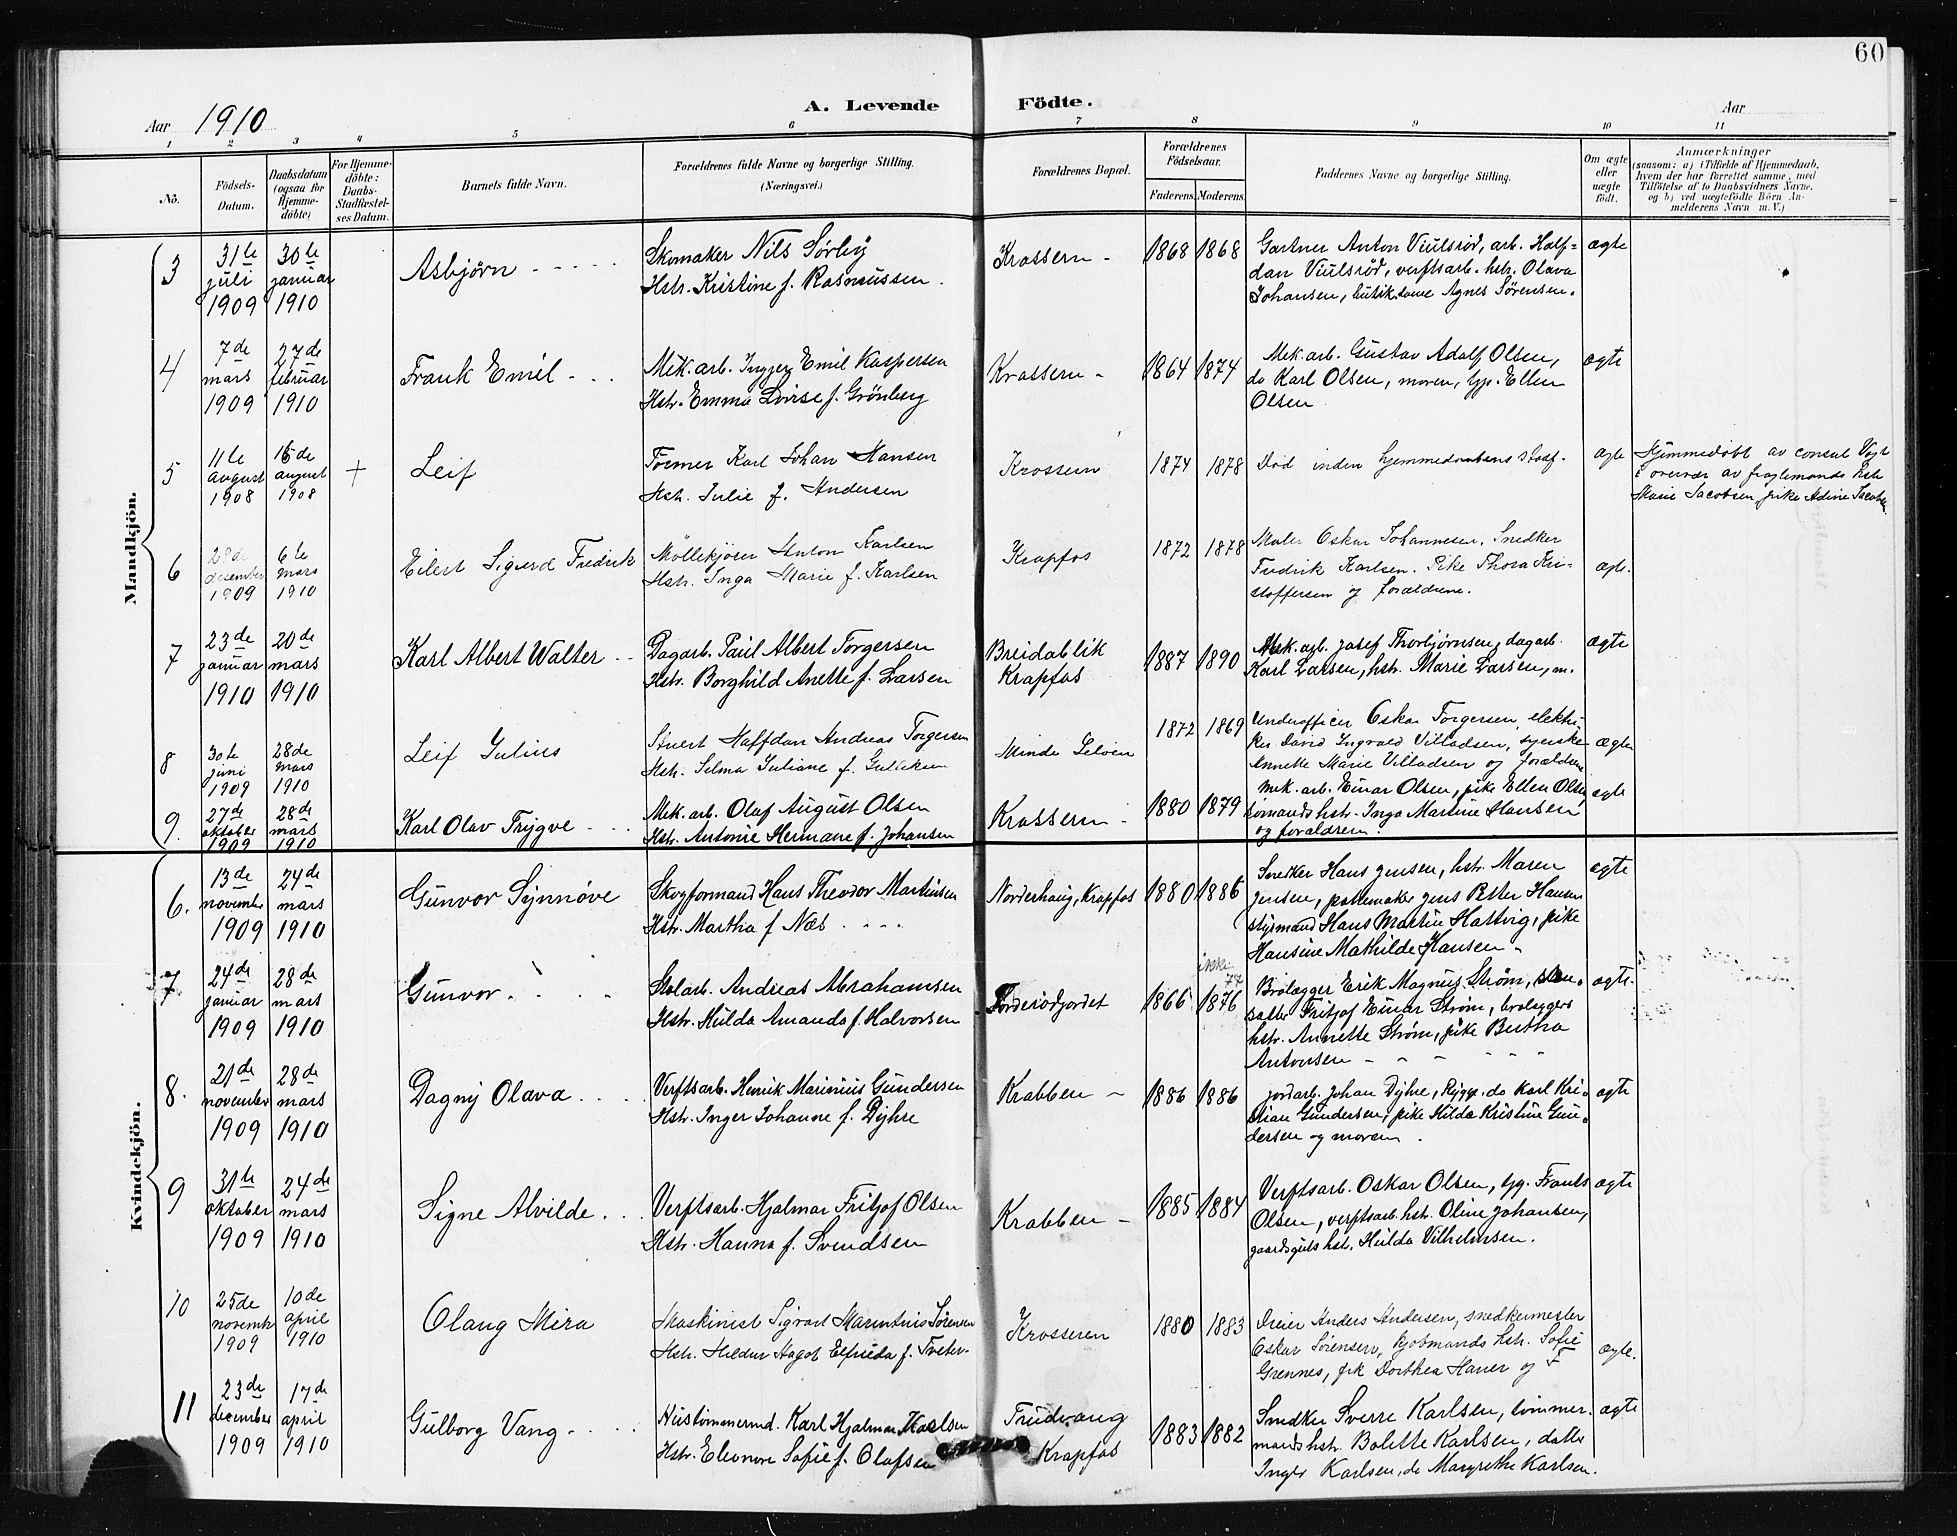 60
Aar 1910
A. Levende Födte.
Aar
1 2 3 4 5 6 7 8 9 10 11
No.
Födsels-Datum.
Daabsdatum (ogsaa for Hjemme-döbte)
For Hjemme-döbte: Daabs-Stadfæstel-ses Datum.
Barnets fulde Navn.
Forældrenes fulde Navne og borgerlige Stilling. (Næringsvei.)
Forældrenes Bopæl.
Forældrenes Födselsaar.
Faderens. Moderens.
Faddernes Navne og borgerlige Stilling.
Om ægte eller uægte födt.
Anmærkninger
(saasom: a) i Tilfælde af Hjemmedaab,
hvem der har forrettet samme, med
Tilföielse af to Daabsvidners Navne.
og b) ved uægtefödte Börn An-
melderens Navn m. V.)
Mandkjön.
3
31te juli 1909
30te januar 1910
Asbjørn
Skomaker Nils Sørby
Hstr. Kristine f. Rasmussen.
Krossern
1868 1868
Gartner Anton Viulsrød, arb. Half-
dan Viulsrød, verftsarb. hstr. Olava
Johansen, butikdame Agnes Sørensen.
ægte
4
7de mars 1909
27de februar 1910
Frank Emil
Mek. arb. Emil Kaspersen
Hstr. Emma Lovise f. Grönberg
Krossern
1864 1874
Mek. arb. Gustav Adolf Olsen,
do Karl Olsen, moren, typ. Ellen
Olsen
ægte
5
11te august 1908
16de august 1908
+
Leif
Former Karl Johan Hansen
Hstr. Julie f. Andersen
Krossern
1874 1878
Död inden hjemmedaabens stadf.
ægte
Hjemmedöbt av consul Vogt
i overvær av fragtemands hstr
Marie Jacobsen pike Adine Jacobsen
6
28de desember 1909
6te mars 1910
Eilert Sigurd Fredrik
Möllekjörer Anton Karlsen
Hstr. Inga Marie f. Karlsen
Krapfos
1872 1878
Maler Oskar Johannesen, Snedker
Fredrik Karlsen. Pike Thora Kri-
stoffersen og forældrene.
ægte.
7
23de januar 1910
20de mars 1910
Karl Albert Walter
Dagarb. Paul Albert Torgersen
Hstr. Borghild Anette f. Larsen
Breidablik
Krapfos
1887 1890
Mek. arb. Josef Thorbjørnsen, dagarb.
Karl Larsen, hstr. Marie Larsen, m.
ægte
8
30te juni 1909
28de mars 1910
Leif Julius
Stuert Halfdan Andreas Torgersen
Hstr. Selma Juliane f. Gulliksen
Minde
1872 1869
Underofficer Oskar Torgersen, elektri-
ker David Ingvald Villadsen, syerske
Annette Marie Villadsen og forældrene
ægte
9.
27de oktober 1909
28de mars 1910
Karl Olav Trygve
Mek. arb. Olaf August Olsen
Hstr. Antonie Hermane f. Johansen
Krossern
1880 1879
Mek. arb. Einar Olsen, pike Ellen Olsen
sömands hstr. Inga Martine Hansen
og forældrene.
ægte
Kvindekjön.
6.
13de november 1909
24de mars 1910
Gunvor Synnöve
Skogformand Hans Theodor Martinsen
Hstr. Martha f. Næs
Norderhaug, Krapfos
1880 1886
Snedker Hans Jensen, hstr. Maren
Jensen, pottemaker Jens Petter Hansen
styrmand Hans Martin Hattvig, pike
Hansine Mathilde Hansen
ægte
7
24de januar 1909
28de mars 1910
Gunvor.
Stolarb. Andreas Abrahamsen
Hstr. Hulda Amanda f. Halvorsen
Torderödjordet
1866 1876
ikke 77
Brolægger Erik Magnus Strøm, sten-
sætter Fritjof Einar Strøm, brolæggers
hstr. Annette Strøm, pike Bertha
Antonsen
ægte.
8.
21de november 1909
28de mars 1910
Dagny Olava
Verftsarb. Henrik Marinius Gundersen
Hstr. Inger Johanne f. Dyhre
Krabben
1886 1886
jordarb. Johan Dyhre, Rygge, do Karl Kri-
stian Gundersen, pike Hilda Kristine Gun-
dersen og moren.
ægte
9
31te oktober 1909
24de mars 1910
Signe Alvilde
Verftsarb. Hjalmar Fritjof Olsen
Hstr. Hanna f. Svendsen
Krabben
1885 1884
Verftsarb. Oskar Olsen, typ. Frants
Olsen, verftsarb. hstr. Oline Johansen,
gaardsguts hstr. Hulda Vilhelmsen.
ægte
10
25de novembr 1909
10de april 1910
Olaug Mira
Maskinist Sigvart Marentius Sørensen
Hstr. Hildur Hagot Elfrida f. Tveter
Krosseren
1880 1883
Dreier Anders Andersen, snedkermester
Oskar Sørensen, kjöbmands hstr. Sofie
Grennes, frk Dorthea Hauer og F
ægte.
11
23de december 1909
17de april 1910
Gulborg Vang
Hustömmermd. Karl Hjalmar Karlsen
Hstr. Eleonore Sofie f. Olafsen
Trudvang
Krapfos
1883 1882
Snedker Sverre Karlsen, tömmer-
mands hstr. Bolette Karlsen, datter
Inger Karlsen, do Margrethe Karlsen.
ægte